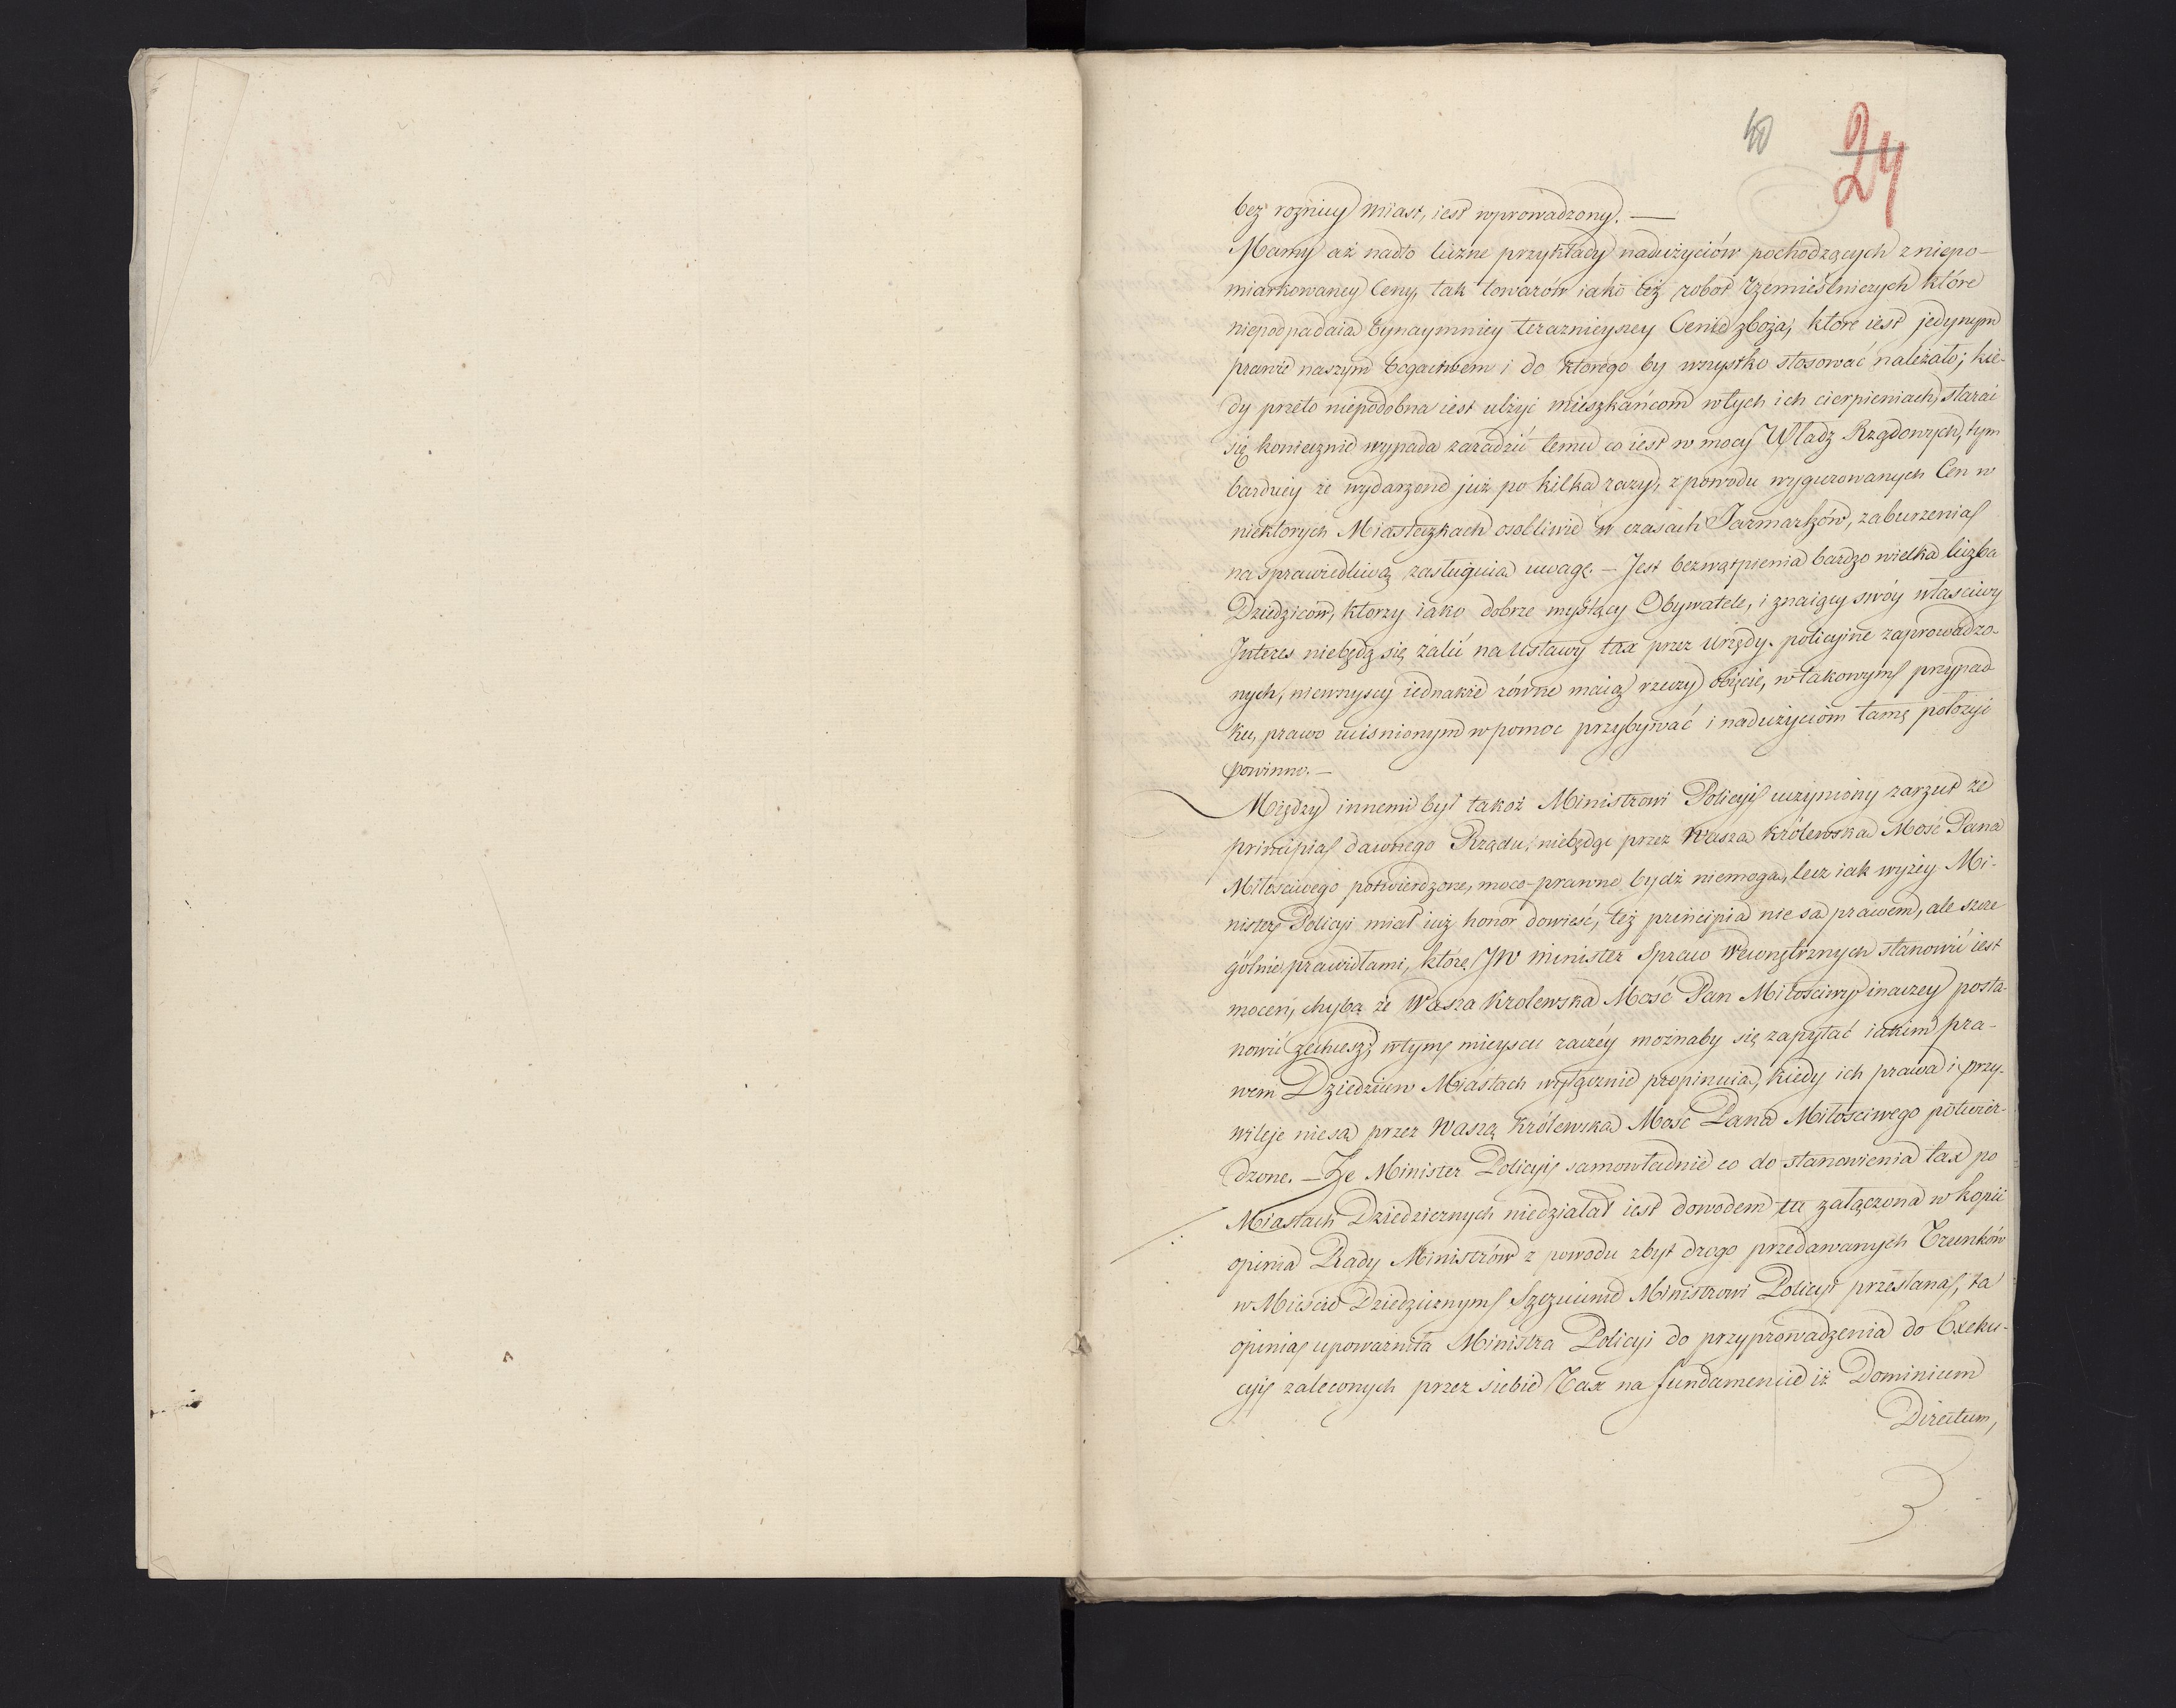 40 24
bez roznicy miast, iest wprowadzony. —
Mamy aż nadto liczne przykłady nadużyciów pochodzących z niepo-
miarkowaney Ceny, tak towarów iako też robot rzemieślniczych które
niepodpadaią bynaymniey terazneyszey Cenie zboża, ktore iest jedynym
prawie naszym bogactwem i do ktorego by wszystko stosować należało; kie-
dy przeto niepodobna iest ulżyć mieszkańcom w tych ich cierpieniach, starać
się koniecznie wypada zaradzić temu co iest w mocy Władz Rządowych, tym
bardziey że wydarzone już po kilka razy, z powodu wygurowanych Cen w
niektorych Miasteczkach osobliwie w czasach Jarmarków, zaburzenia
na sprawiedliwą zasługuią uwagę. — Jest bezwątpienia bardzo wielka liczba
Dziedziców, ktorzy iako dobrze myślący Obywatele, i znaiący swóy własciwy
Interes niebędą się żalić na Ustawy tax przez Urzędy policyine zaprowadzo-
nych, niewszyscy iednakże równe maią rzeczy obięcie, w takowym przypad-
ku, prawo uciśnionym w pomoc przybywać i nadużyciom tamę położyć
powinno. —
Między innemi był takoż Ministrowi Policyi uczyniony zarzut że
principia dawnego Rządu, niebędąc przez Waszą Królewską Mość Pana
Miłościwego potwierdzone, moco-prawne bydź niemogą, lecz iak wyżey Mi-
nister Policyi miał iuż honor dowieść, też principia nie są prawem, ale szcze
gólnie prawidłami, które JW Minister Spraw Wewnętrznych stanowić iest
mocen, chyba że Wasza Krolewska Mość Pan Miłościwy inaczey posta-
nowić zechcesz; w tym mieyscu raczéy możnaby się zapytać iakim pra-
wem Dziedzice w Miastach wyłącznie propinuią, kiedy ich prawa i przy-
wileje nie są przez Waszą Królewską Mość Pana Miłościwego potwier-
dzone. — Że Minister Policyi samowładnie co do stanowienia tax po
Miastach Dziedzicznych niedziałał iest dowodem tu załączona w kopii
opinia Rady Ministrów z powodu zbyt drogo przedawanych Trunków
w Mieście Dziedzicznym Szczucinie Ministrowi Policyi przesłana, ta
opinia upoważniła Ministra Policyi do przyprowadzenia do Exeku-
cyi zaleconych przez siebie Tax na fundamencie iż Dominium
Directum,